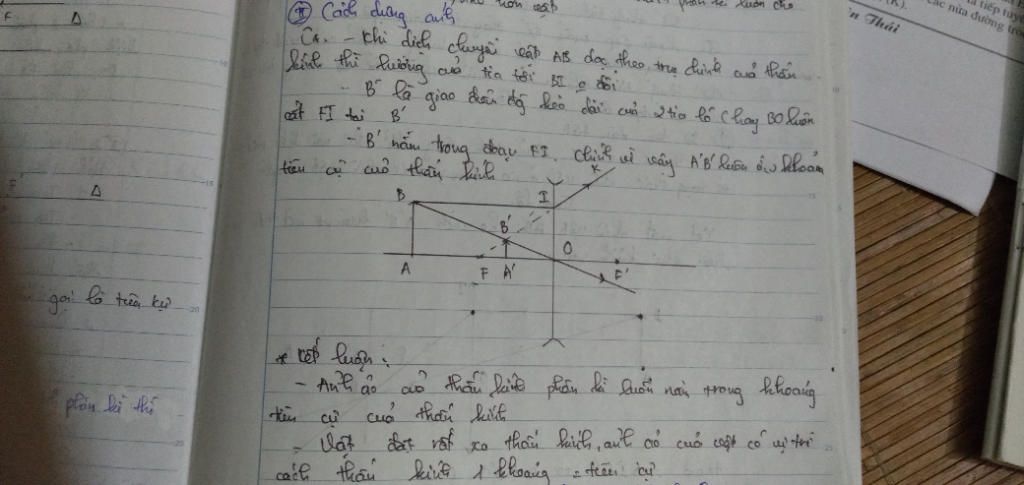 F Δ
F' Δ
gọi là tiêu cự
phân kì thì
luôn cho
II Cách dựng ảnh
C4. - Khi dịch chuyển vật AB dọc theo trục chính của thấu
kính thì hướng của tia tới BI o đổi
- B' là giao điểm kéo dài của 2 tia ló (hay BO luôn
cắt FI tại B'
- B' nằm trong đoạn FI. Chính vì vậy A'B' luôn ở khoảng
tiêu cự của thấu kính
K
B I
B'
O
A F A' F'
* Kết luận:
- Ảnh ảo của thấu kính phân kì luôn nằm trong khoảng
tiêu cự của thấu kính
- Vật đặt rất xa thấu kính, ảnh ảo của vật có vị trí
cách thấu kính 1 khoảng = tiêu cự
(K).
là tiếp tuyế
các nửa đường tro
ên Thái